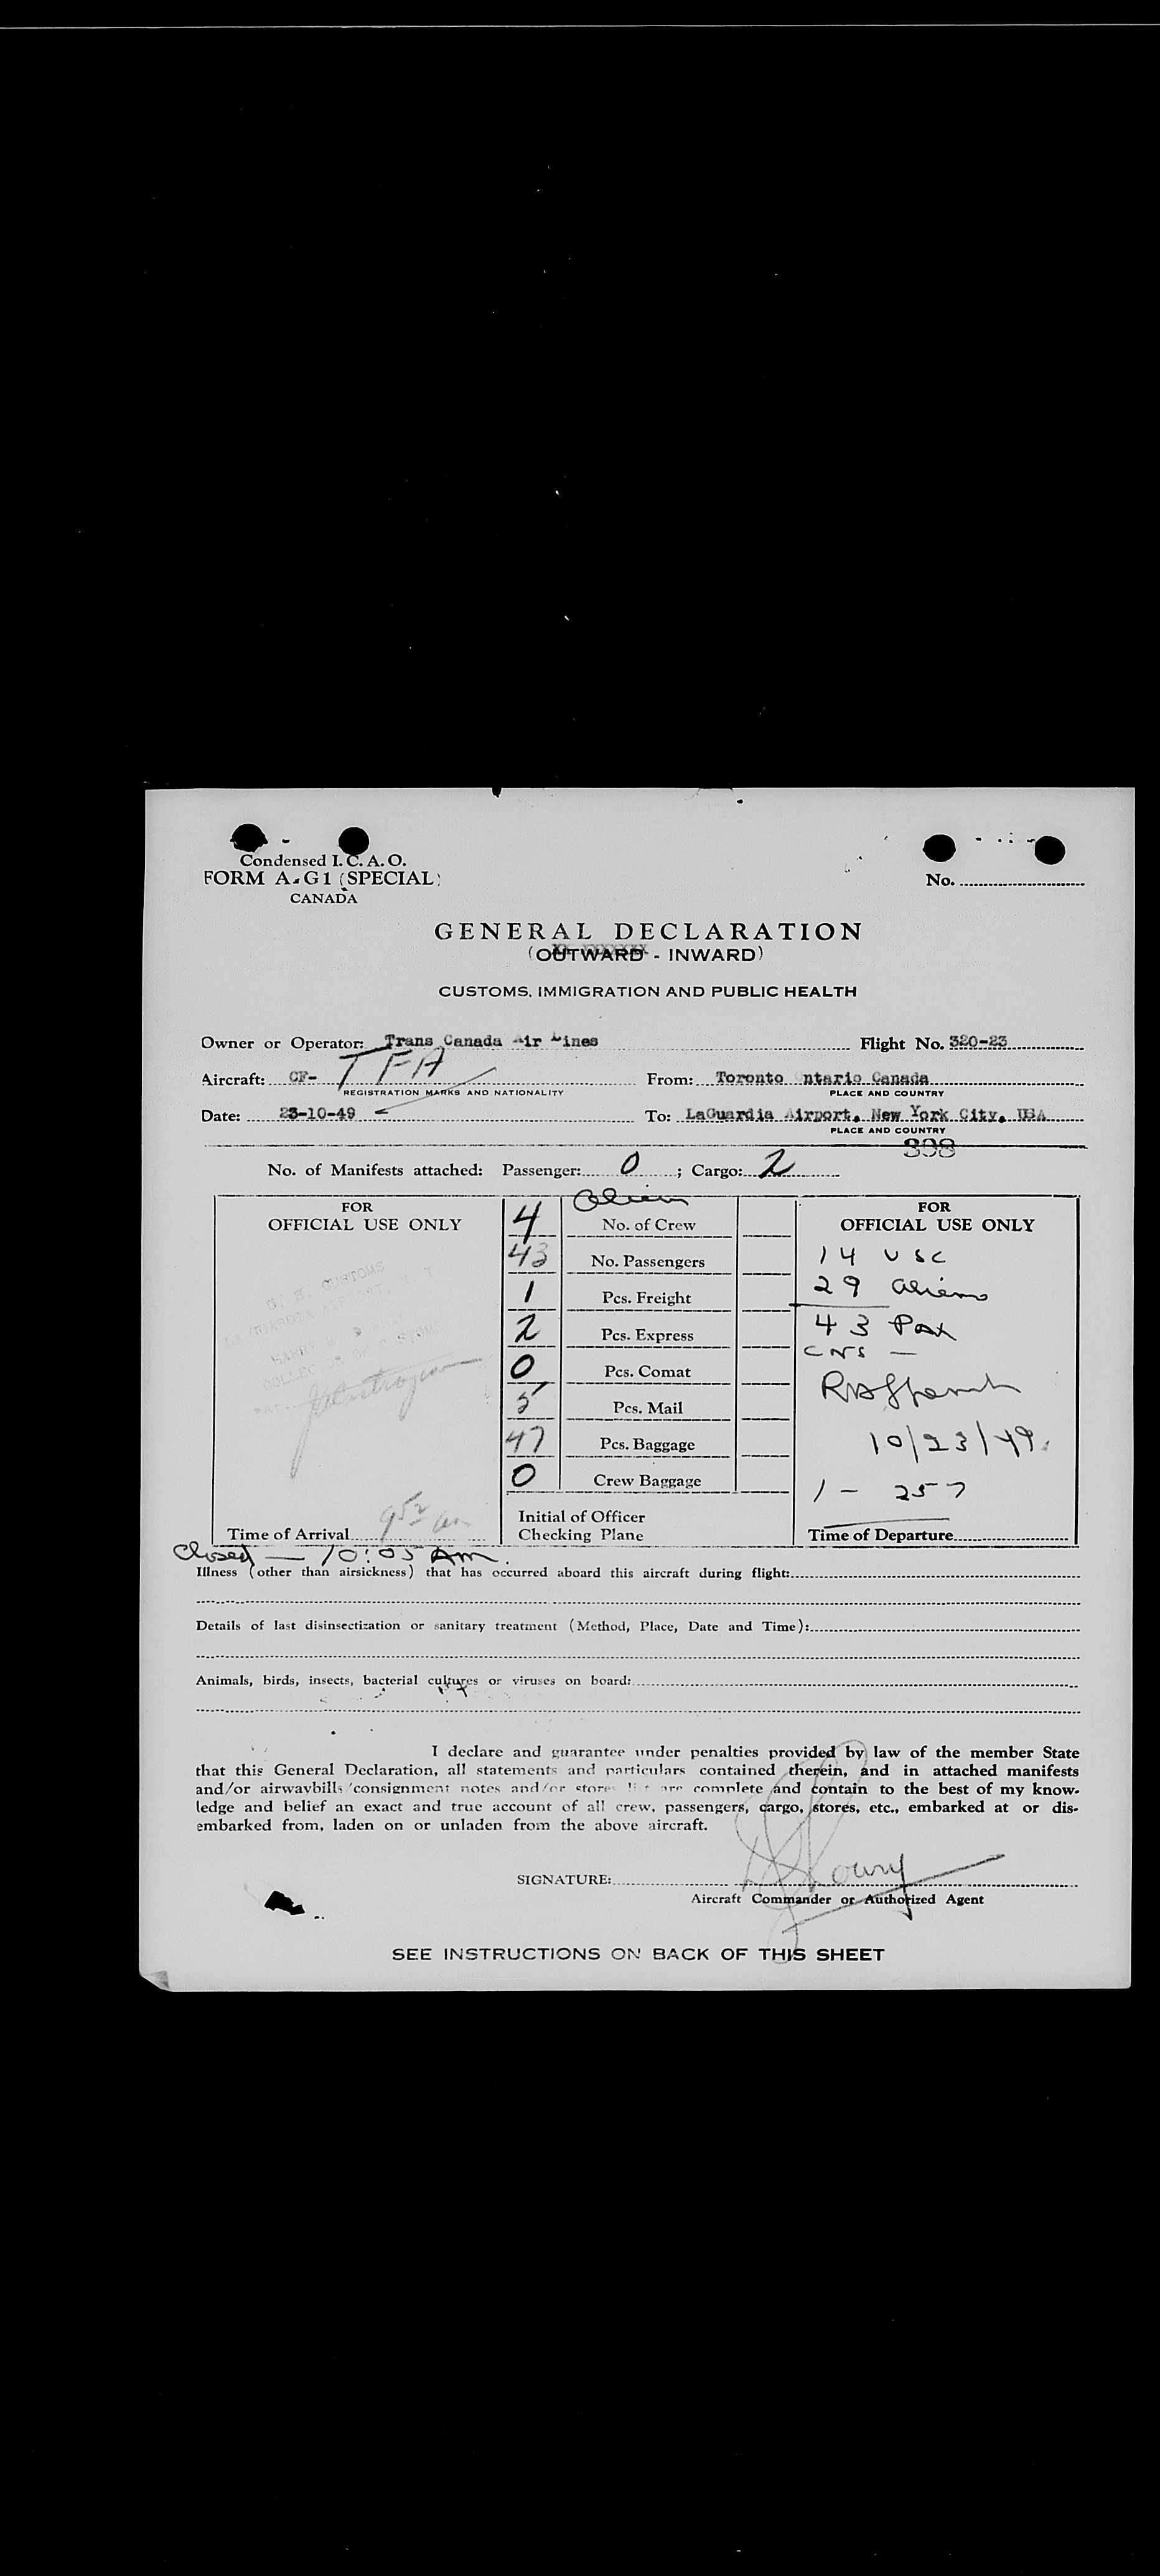 Condensed I. C. A. O.
FORM A-G1 (SPECIAL)
CANADA
No.
GENERAL DECLARATION
(OUTWARD - INWARD)
CUSTOMS, IMMIGRATION AND PUBLIC HEALTH
Owner or Operator: Trans Canada Air Lines Flight No. 320-23
Aircraft: CF- TFA From: Toronto ntario Canada
REGISTRATION MARKS AND NATIONALITY PLACE AND COUNTRY
Date: 23-10-49 To: LaGuardia Airport, New York City, USA
PLACE AND COUNTRY
398
No. of Manifests attached: Passenger: 0 ; Cargo: 2
FOR
OFFICIAL USE ONLY
U. S. CUSTOMS
LA GUARDIA AIRPORT, N. Y.
COLLECTOR OF CUSTOMS
9 52 am
Time of Arrival
Alien
4 No. of Crew
43 No. Passengers
1 Pcs. Freight
2 Pcs. Express
0 Pcs. Comat
5 Pcs. Mail
47 Pcs. Baggage
0 Crew Baggage
Initial of Officer
Checking Plane
FOR
OFFICIAL USE ONLY
14 USC
29 aliens
43 Pax
10/23/49
1 - 257
Time of Departure
Closed — 10:05 AM.
Illness (other than airsickness) that has occurred aboard this aircraft during flight:
Details of last disinsectization or sanitary treatment (Method, Place, Date and Time):
Animals, birds, insects, bacterial cultures or viruses on board:
I declare and guarantee under penalties provided by law of the member State
that this General Declaration, all statements and particulars contained therein, and in attached manifests
and/or airwaybills/consignment notes and/or stores list are complete and contain to the best of my know-
ledge and belief an exact and true account of all crew, passengers, cargo, stores, etc., embarked at or dis-
embarked from, laden on or unladen from the above aircraft.
SIGNATURE:
Aircraft Commander or Authorized Agent
SEE INSTRUCTIONS ON BACK OF THIS SHEET